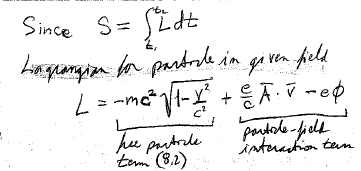 Since S = ∫_{t₁}^{t₂} L dt
Lagrangian for particle in given field
L = -mc² √(1 - v²/c²) + e/c A̅ · v̅ - eϕ
free particle term (8.2)
particle-field interaction term